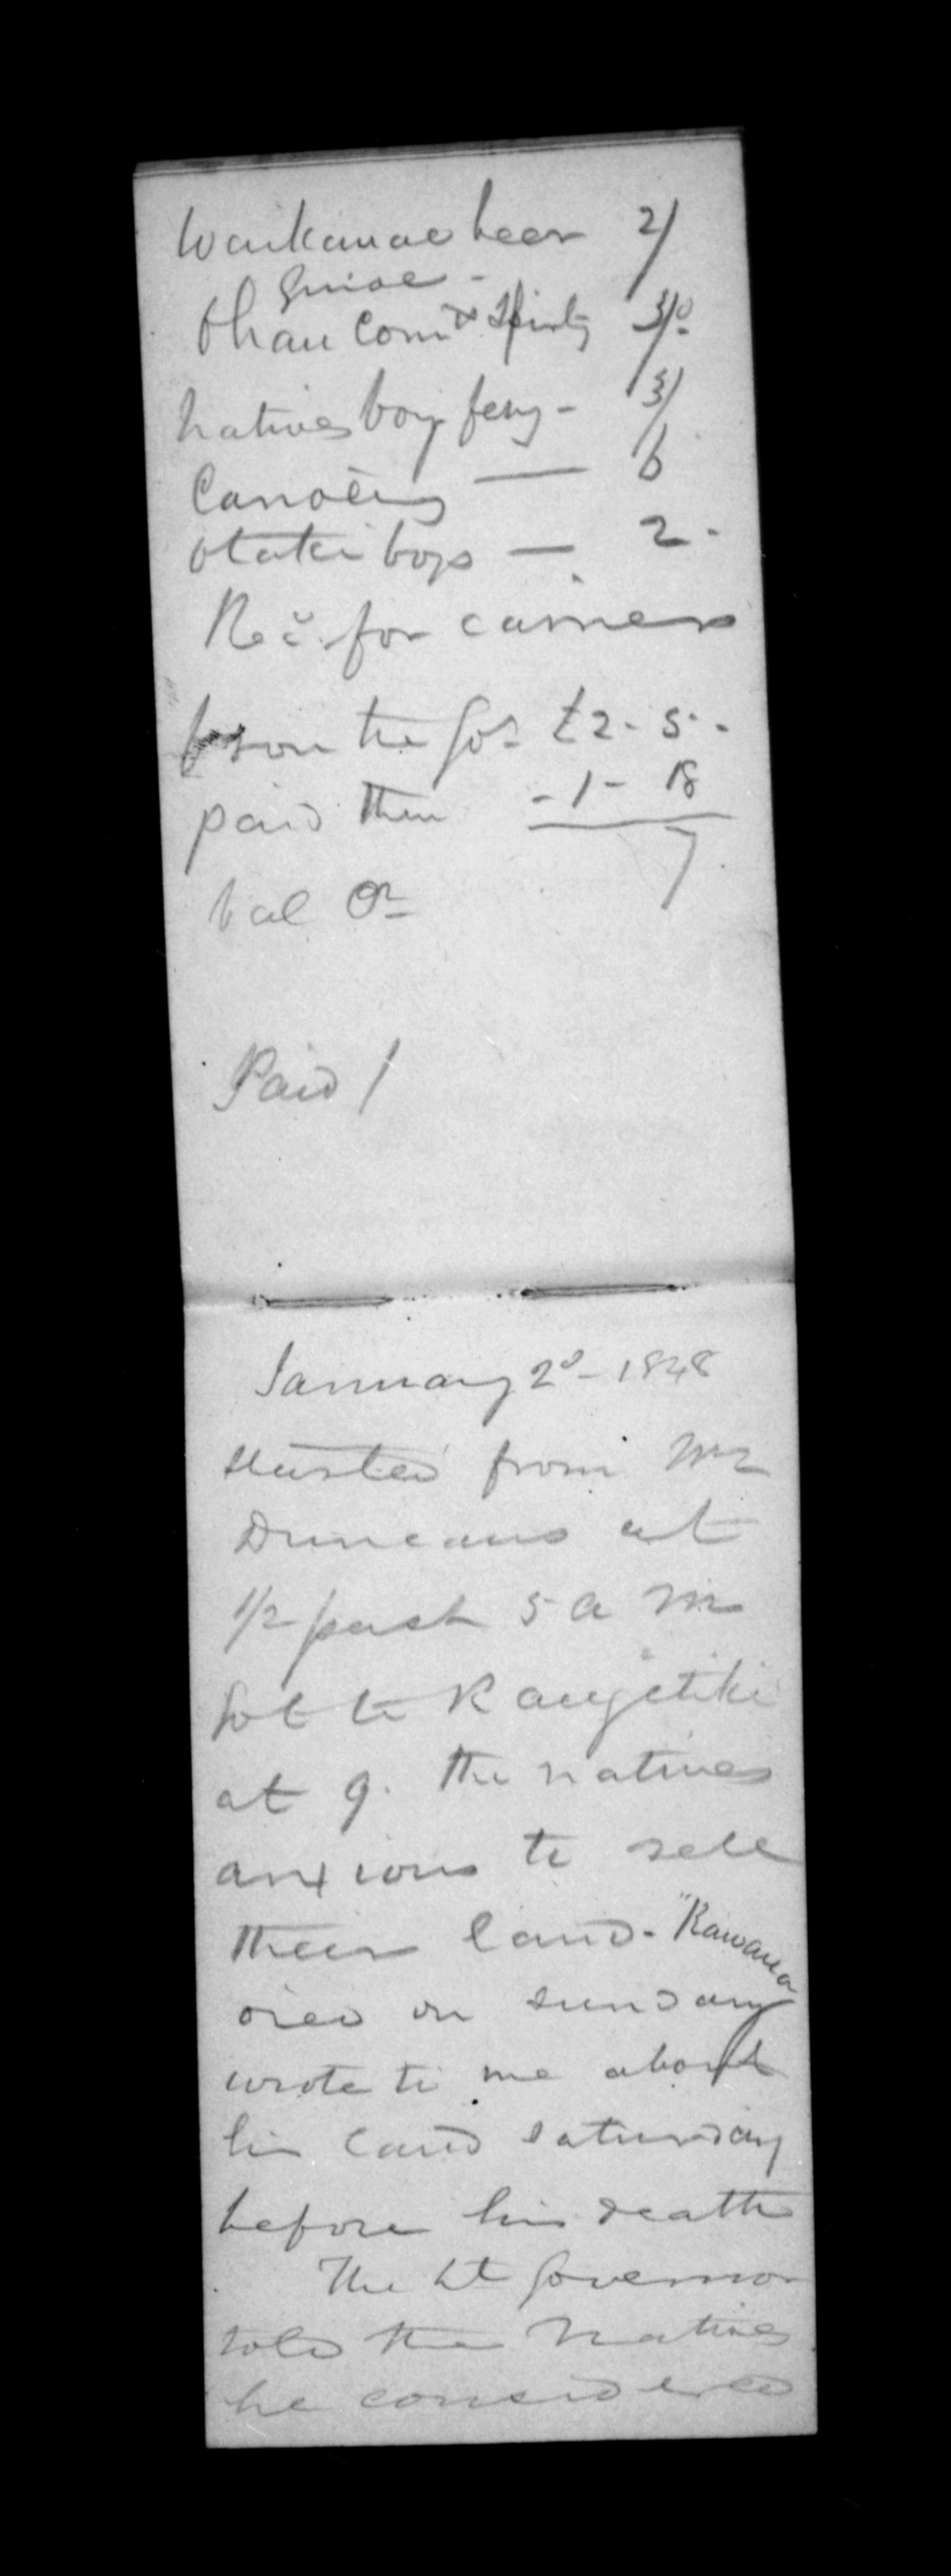 Waikanae beer 2/
Ohau Com 3/
Natives boy ferry - 3/
Canoeing — 6
Otaki boys — 2 -
Rec for carriers
from the Gov £2 - 5 -
paid then - 1 - 18
bal 7
Paid /
January 2d - 1848
Started from Mr
Duncans at
1/2 past 5 a m
Got to Rangitiki
at 9. The natives
anxious to sell
their land - "Kawana
died on Sunday
wrote to me about
his land Saturday
before his death
The Lt Governor
told the Natives
he considered